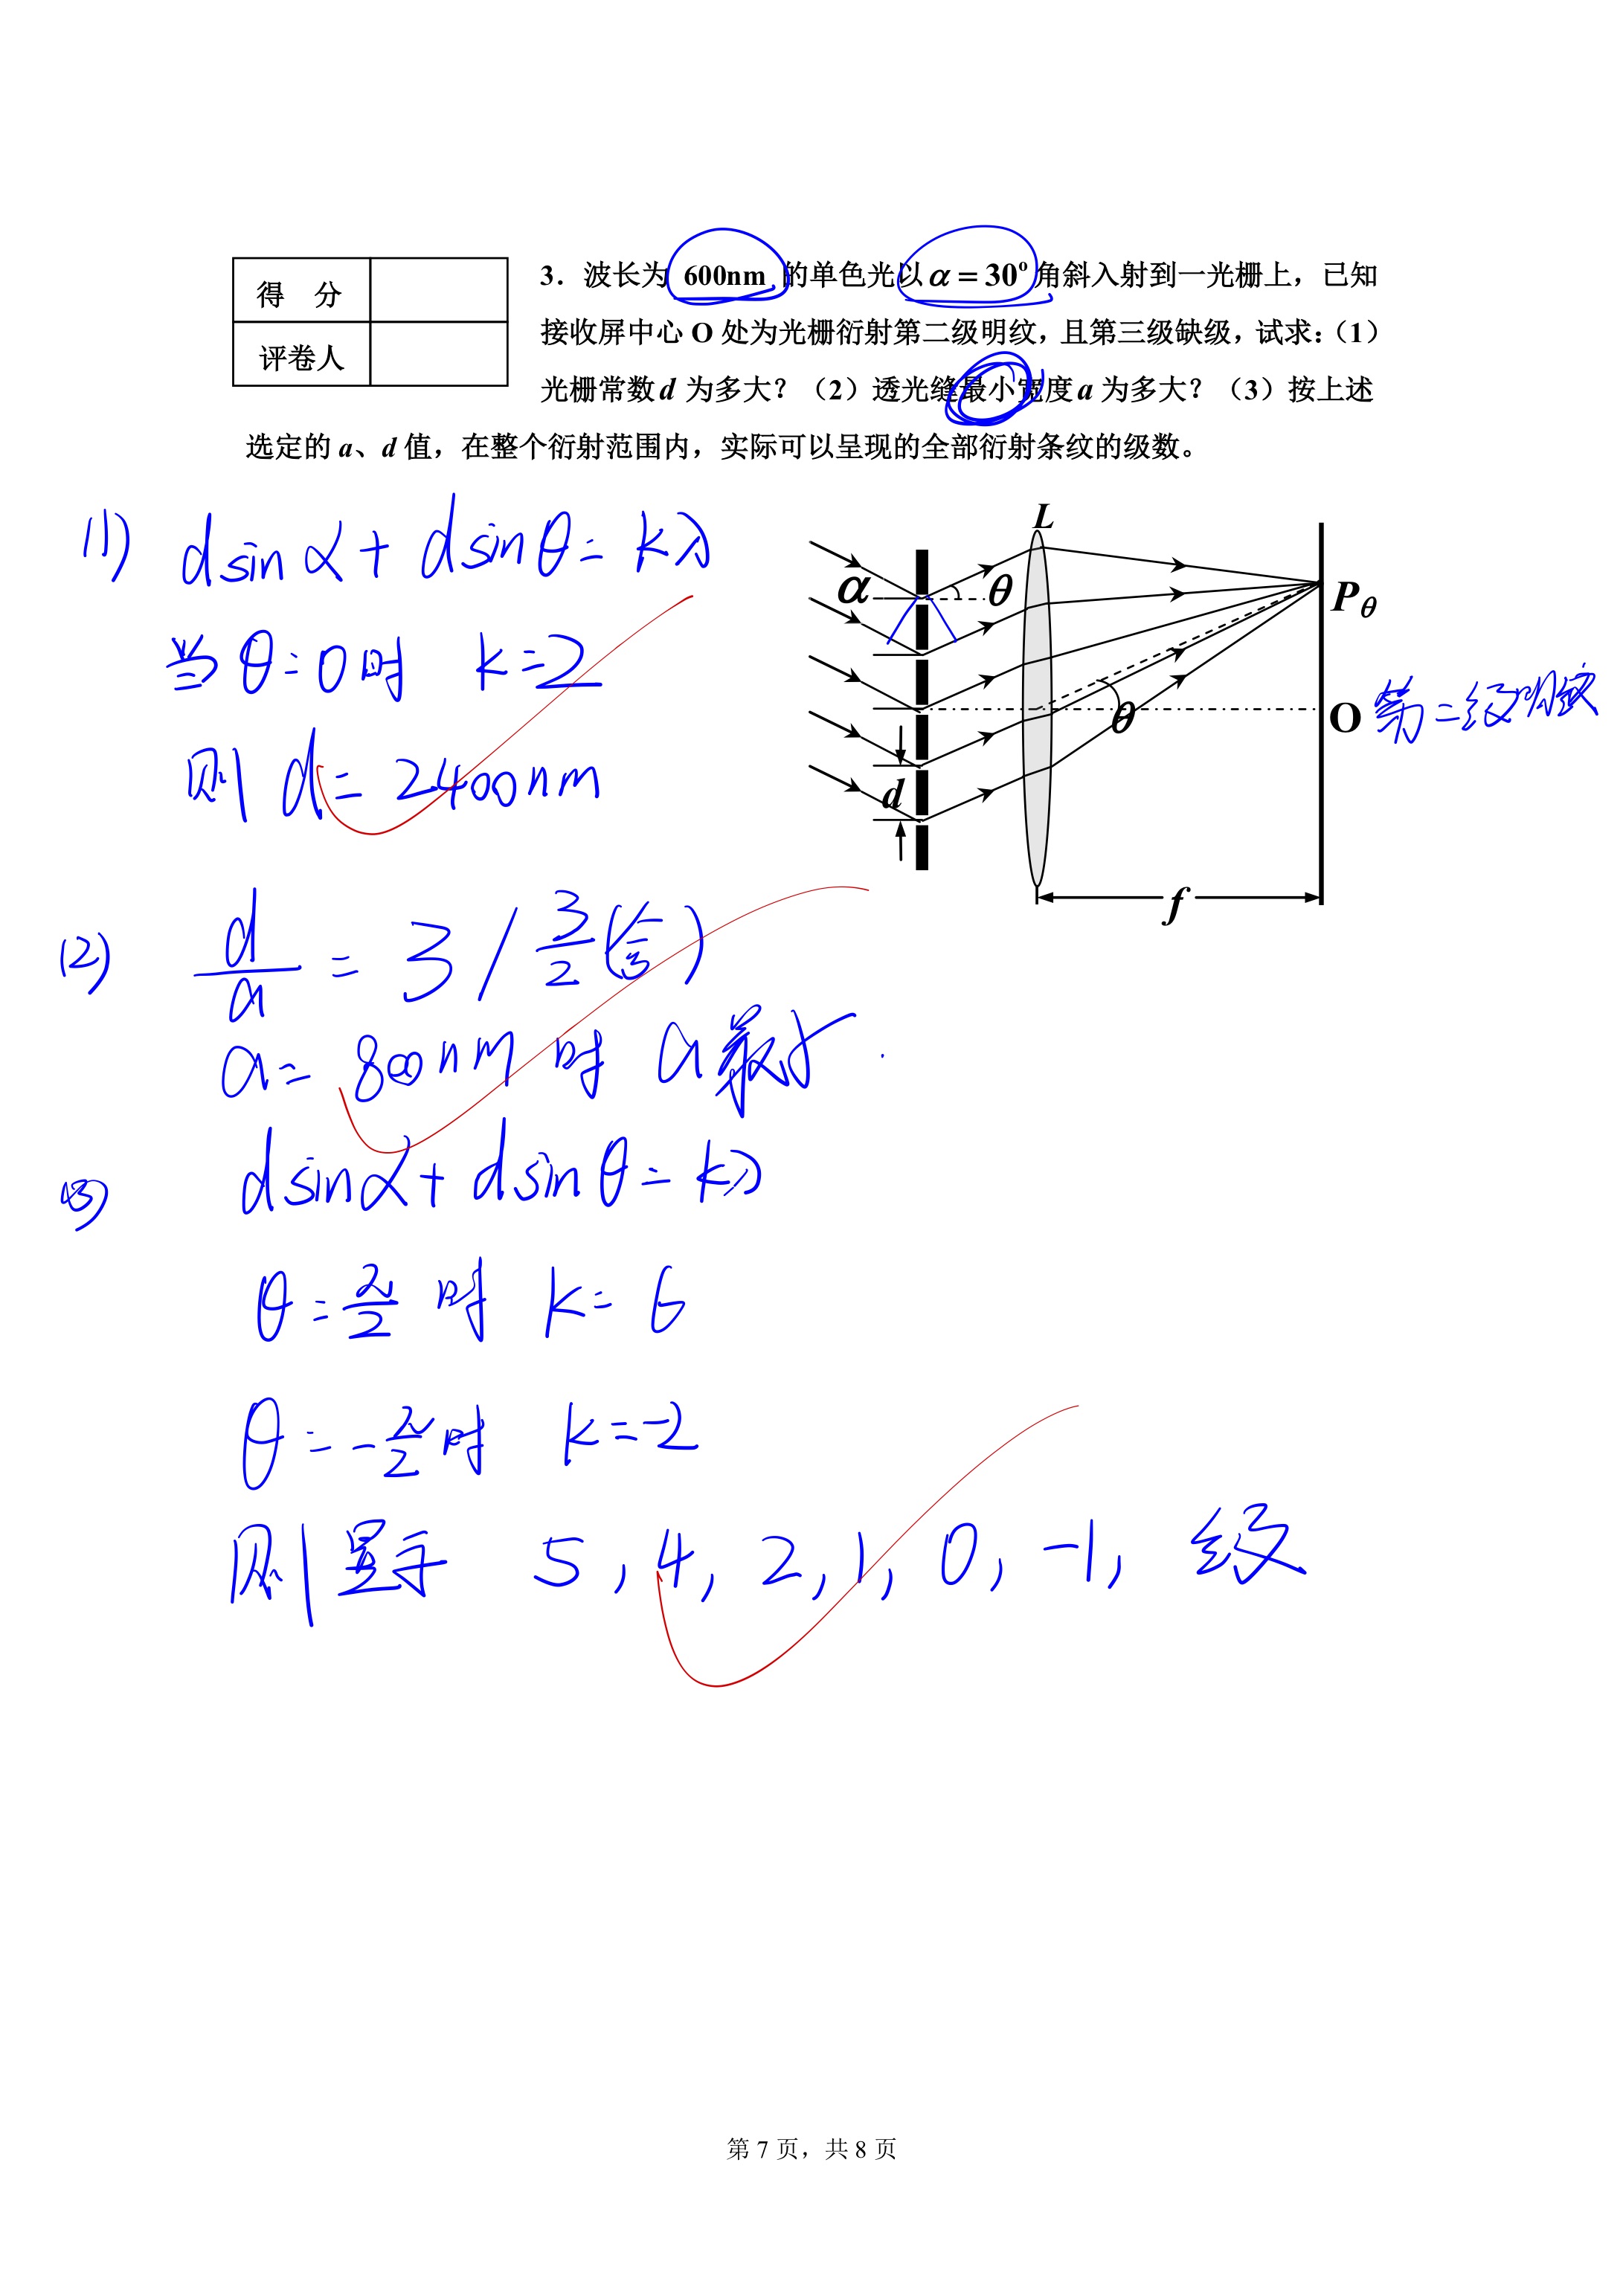 得 分
评卷人
3．波长为 600nm 的单色光以 α = 30° 角斜入射到一光栅上，已知
接收屏中心 O 处为光栅衍射第二级明纹，且第三级缺级，试求：（1）
光栅常数 d 为多大？（2）透光缝最小宽度 a 为多大？（3）按上述
选定的 a、d 值，在整个衍射范围内，实际可以呈现的全部衍射条纹的级数。
L
α
θ
Pθ
θ
O 第二级明纹
d
f
(1) dsinα + dsinθ = kλ
当 θ=0时 k=2
则 d = 2400nm
(2) d/a = 3 / 3/2 (舍)
a = 800nm 时 a最小.
(3) dsinα + dsinθ = kλ
θ = π/2 时 k = 6
θ = -π/2 时 k = -2
则呈于 5, 4, 2, 1, 0, -1, 级
第 7 页，共 8 页